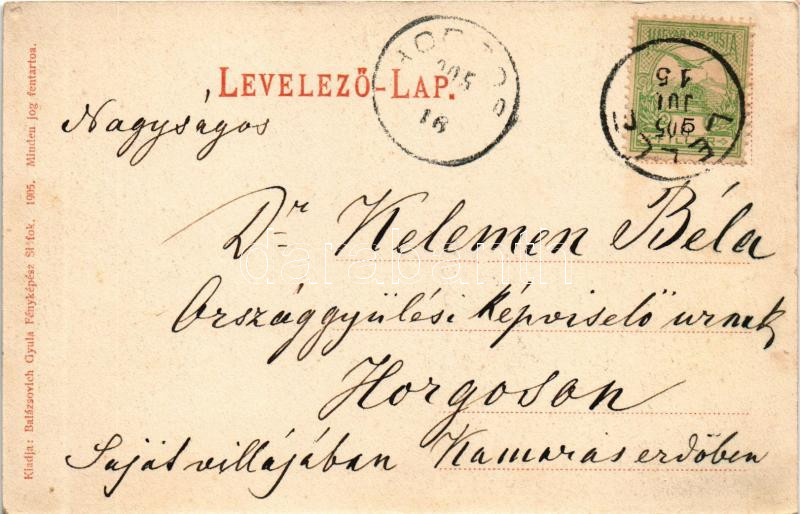 LEVELEZŐ-LAP.
HORGOS
905
16
MAGYAR KIR. POSTA
LELLE
905
JUL
15
Nagyságos
Dr Kelemen Béla
Országgyülési képviselő urnak
Horgoson
Saját villájában Kamaráserdőben
Kiadja: Balázsovich Gyula Fényképész Siófok. 1905. Minden jog fentartva.
darabanth